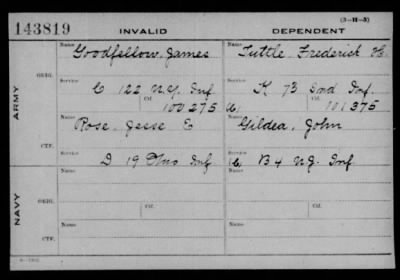 143819 INVALID DEPENDENT (3-11-3)
ARMY
ORIG.
Name Goodfellow, James
Name Tuttle, Frederick
Service C 122 N.Y. Inf
Service K 73 Ind Inf.
Ctf. 100275
Ctf. 101375
CTF.
Name Rose, Jesse E
Name Gildea, John
Service D 19 Ohio Inf
Service B 4 N.J. Inf.
NAVY
ORIG.
Name
Name
Service
Ctf.
Service
Ctf.
CTF.
Name
Name
Service
Service